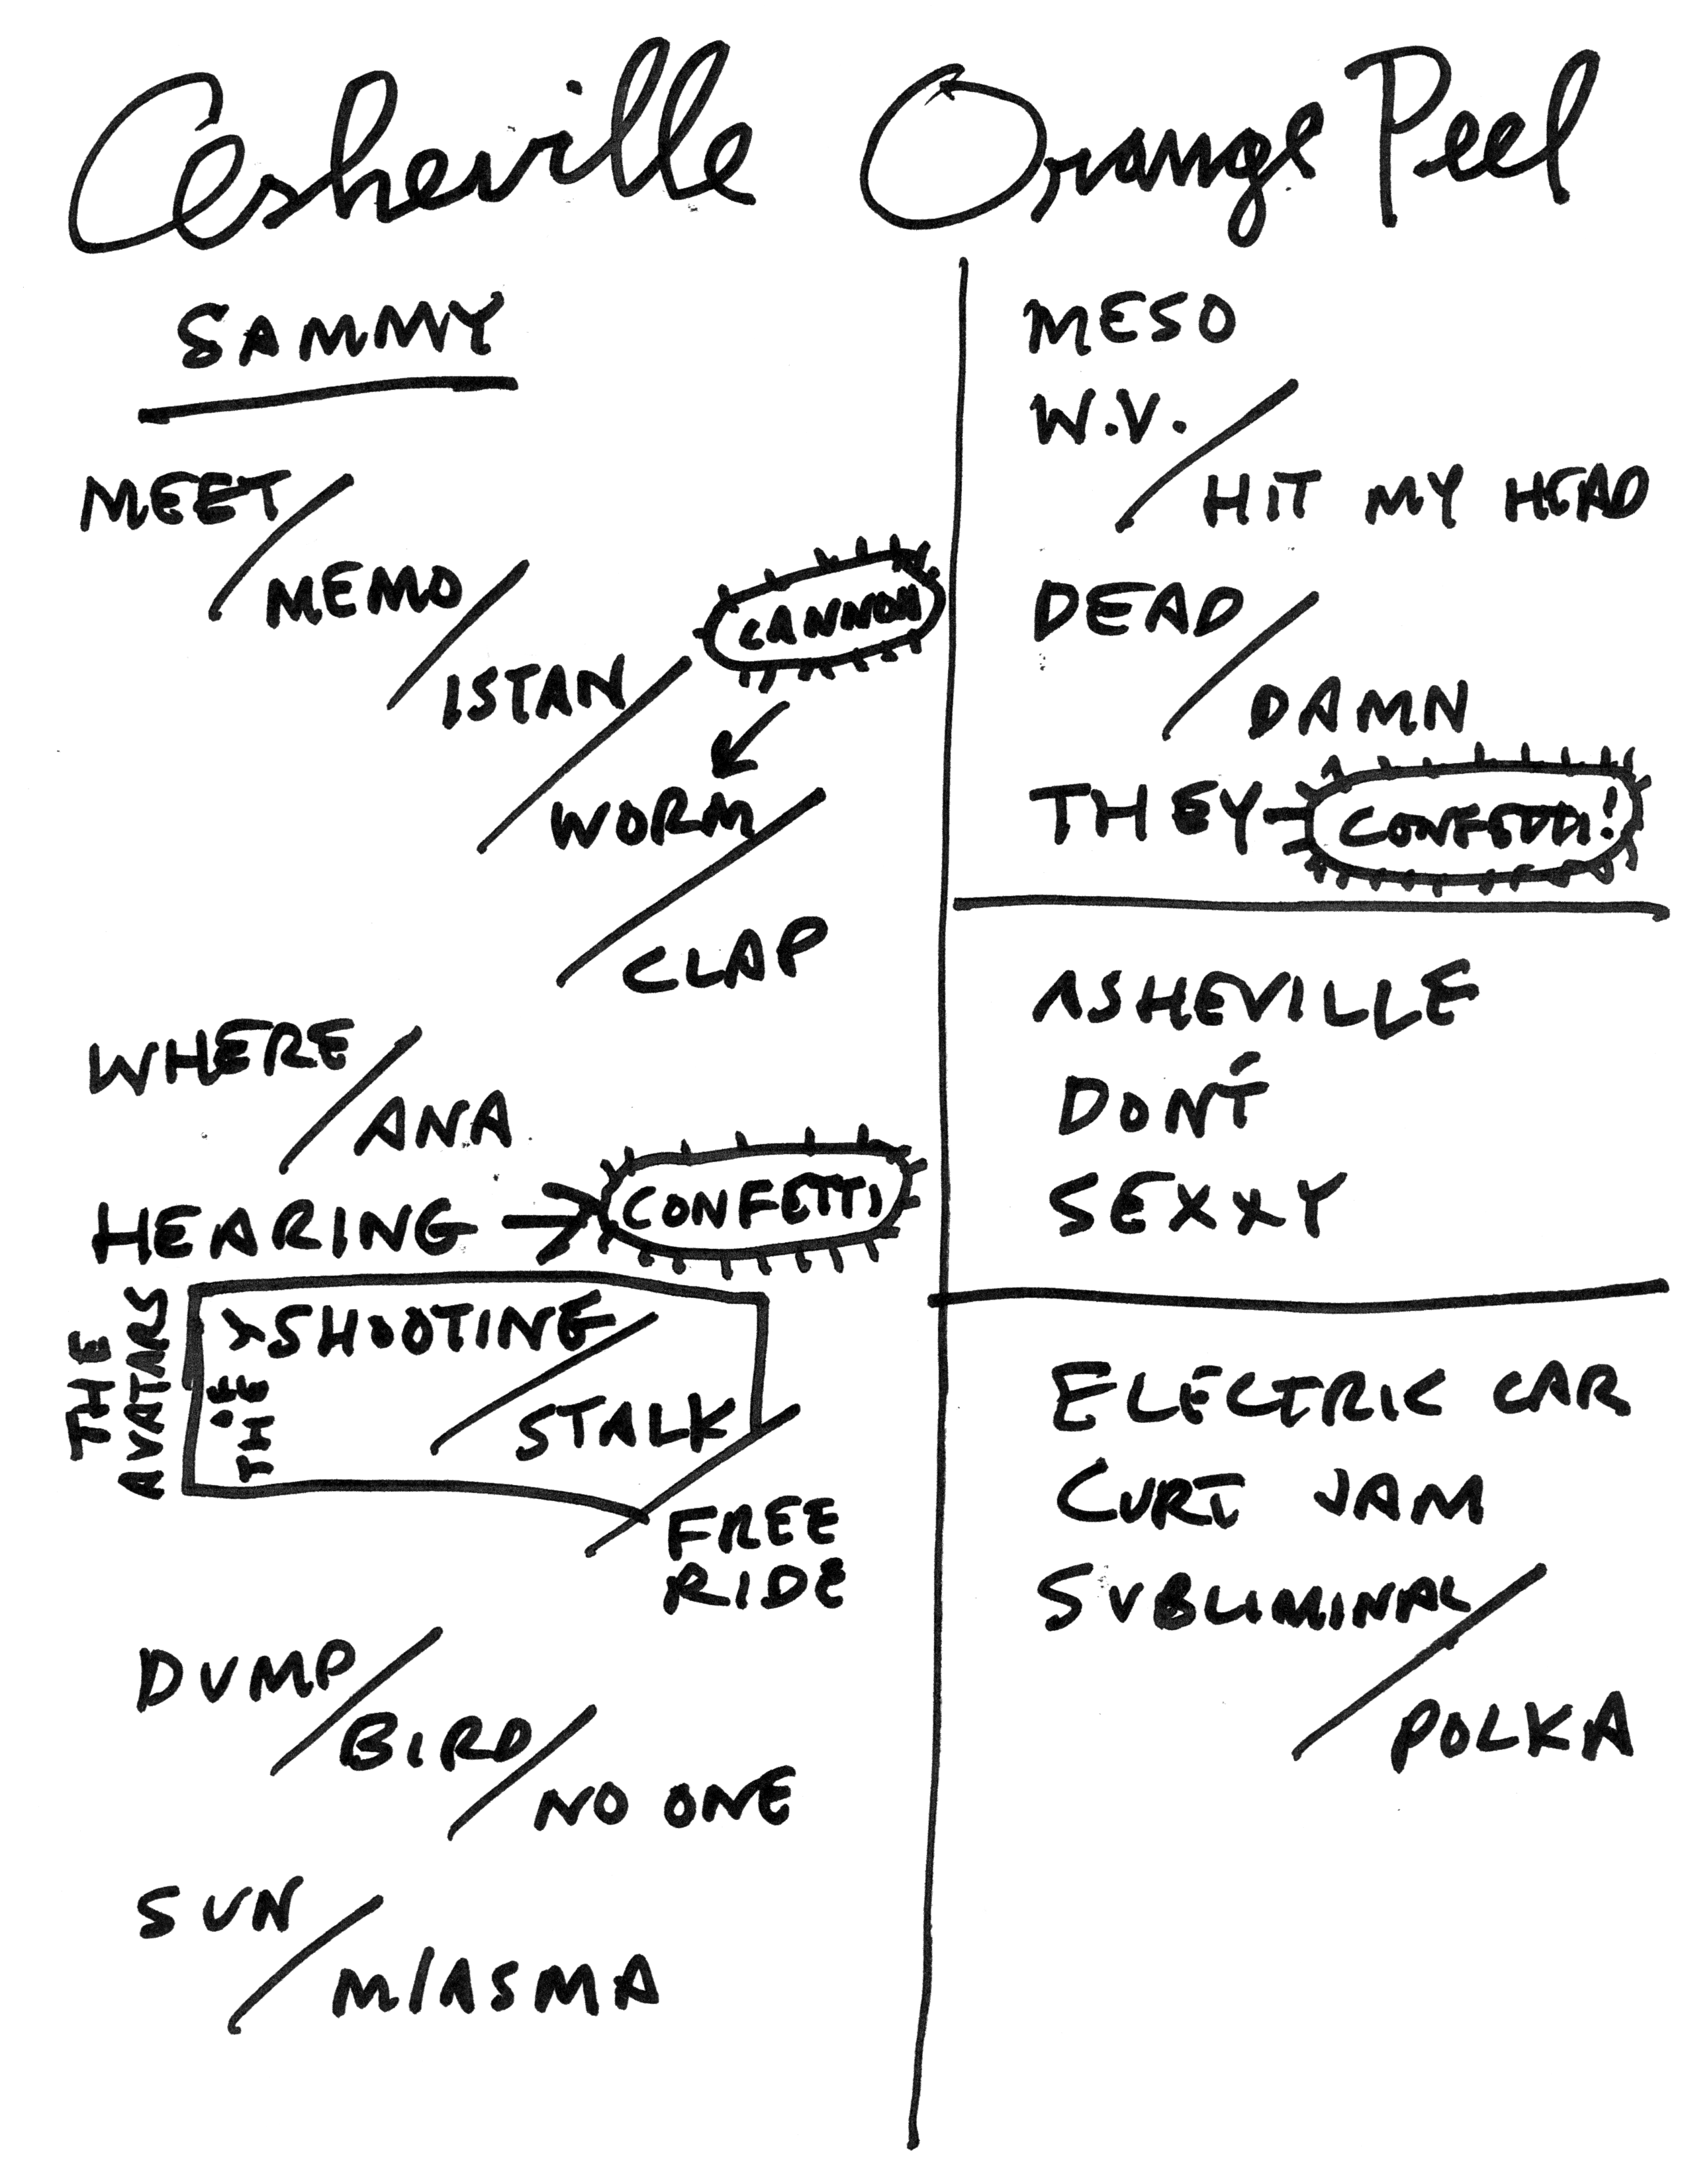 Asheville Orange Peel
SAMMY
MEET/
MEMO/
CANNON
ISTAN/
WORM/
CLAP
WHERE/
ANA
HEARING → CONFETTI
THE
AVATARS
SHOOTING/
THE
STALK/
FREE
RIDE
DUMP/
BIRD/
NO ONE
SUN/
MIASMA
MESO
W.V./
HIT MY HEAD
DEAD/
DAMN
THEY-CONFETTI!
ASHEVILLE
DON'T
SEXXY
ELECTRIC CAR
CURT JAM
SUBLIMINAL/
POLKA